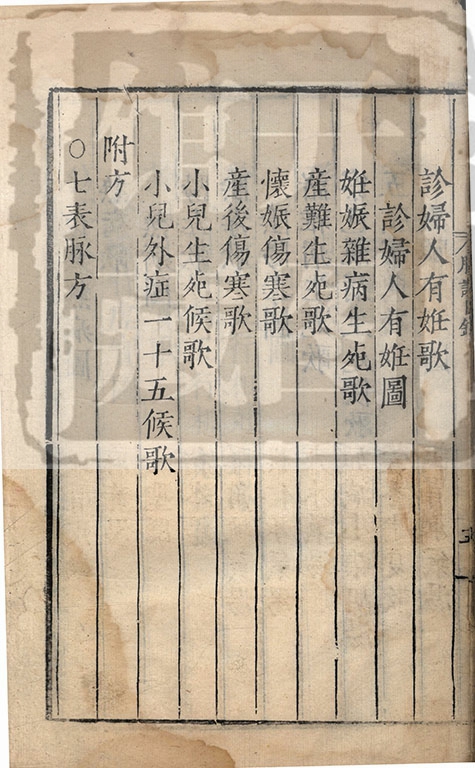 診婦人有姙歌
診婦人有姙圖
姙娠雜病生死歌
産難生死歌
懷娠傷寒歌
産後傷寒歌
小兒生死候歌
小兒外症一十五候歌
附方
○七表脉方